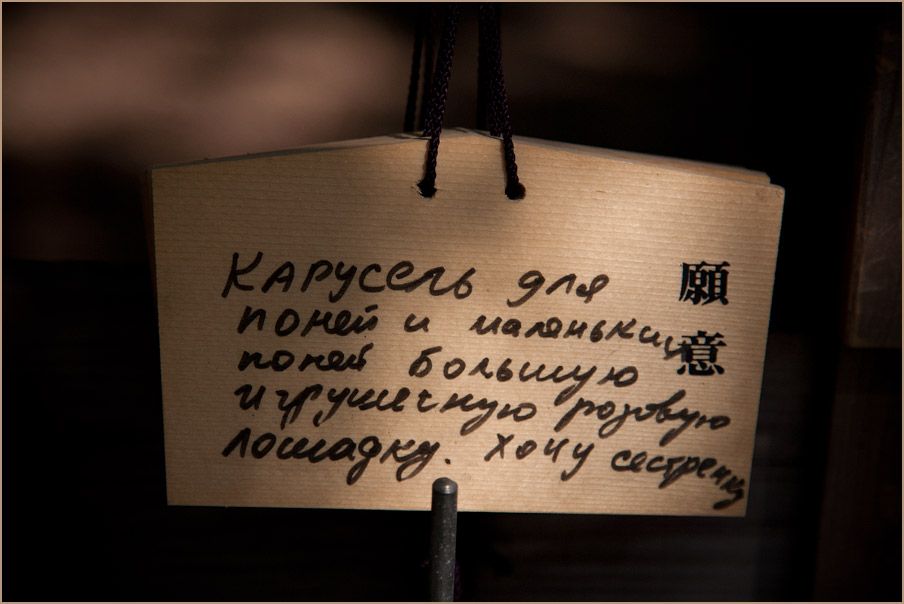 Карусель для
поней и маленьких
поней большую
игрушечную розовую
лошадку. Хочу сестренку
願意